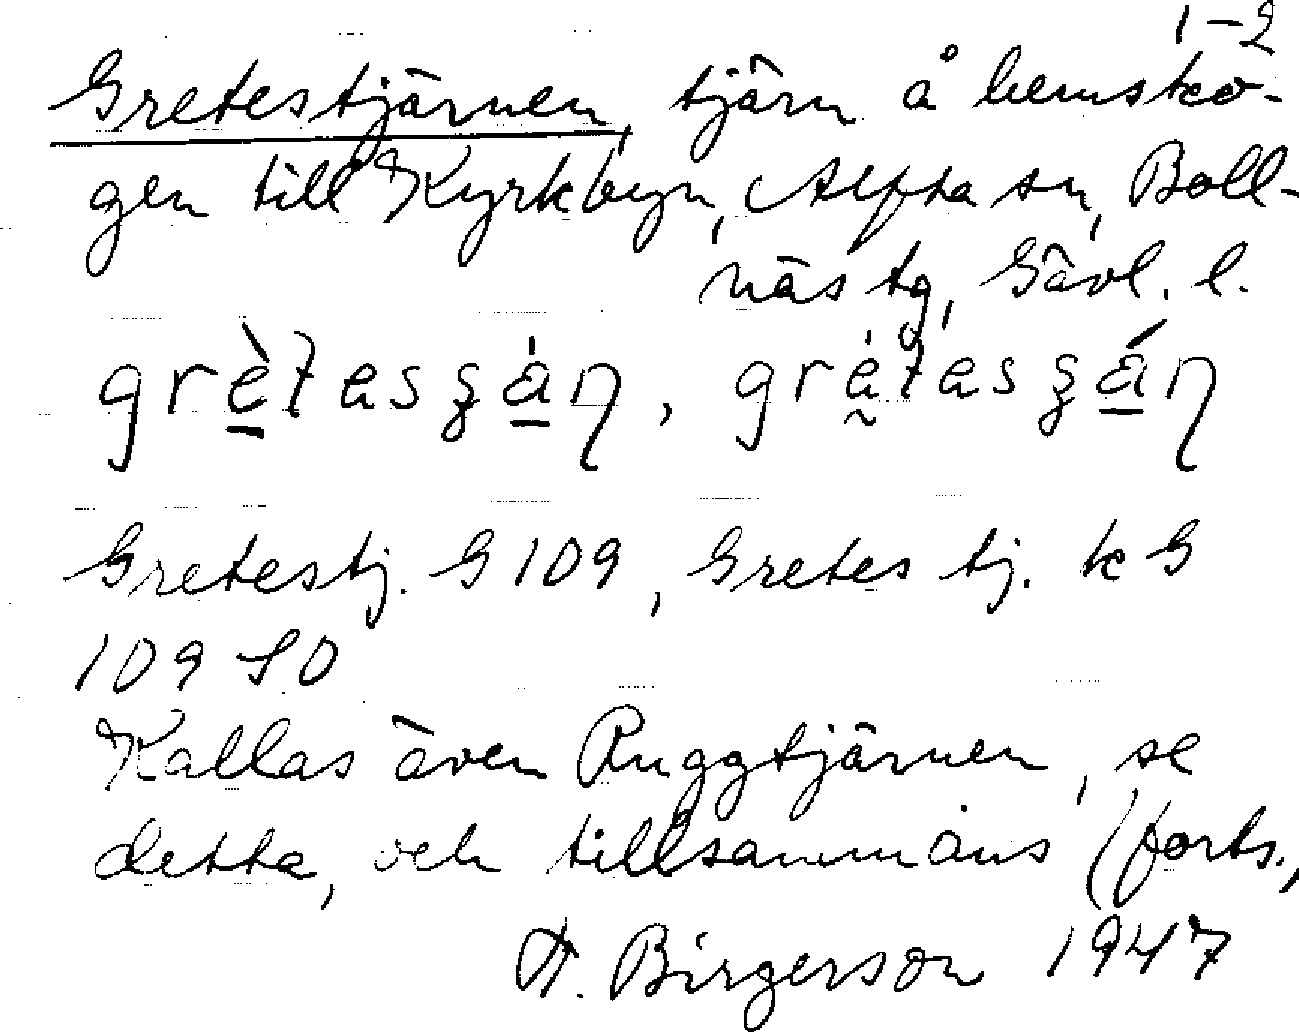 1-2
Gretestjärnen, tjärn å hemsko-
gen till Kyrkbyn, Alfta sn, Boll-
näs tg, Gävl. l.
Gretestj. G 109, Gretes tj. k G
109 SO
Kallas även Ruggtjärnen, se
detta, och tillsammans (forts.,
H. Birgerson 1947